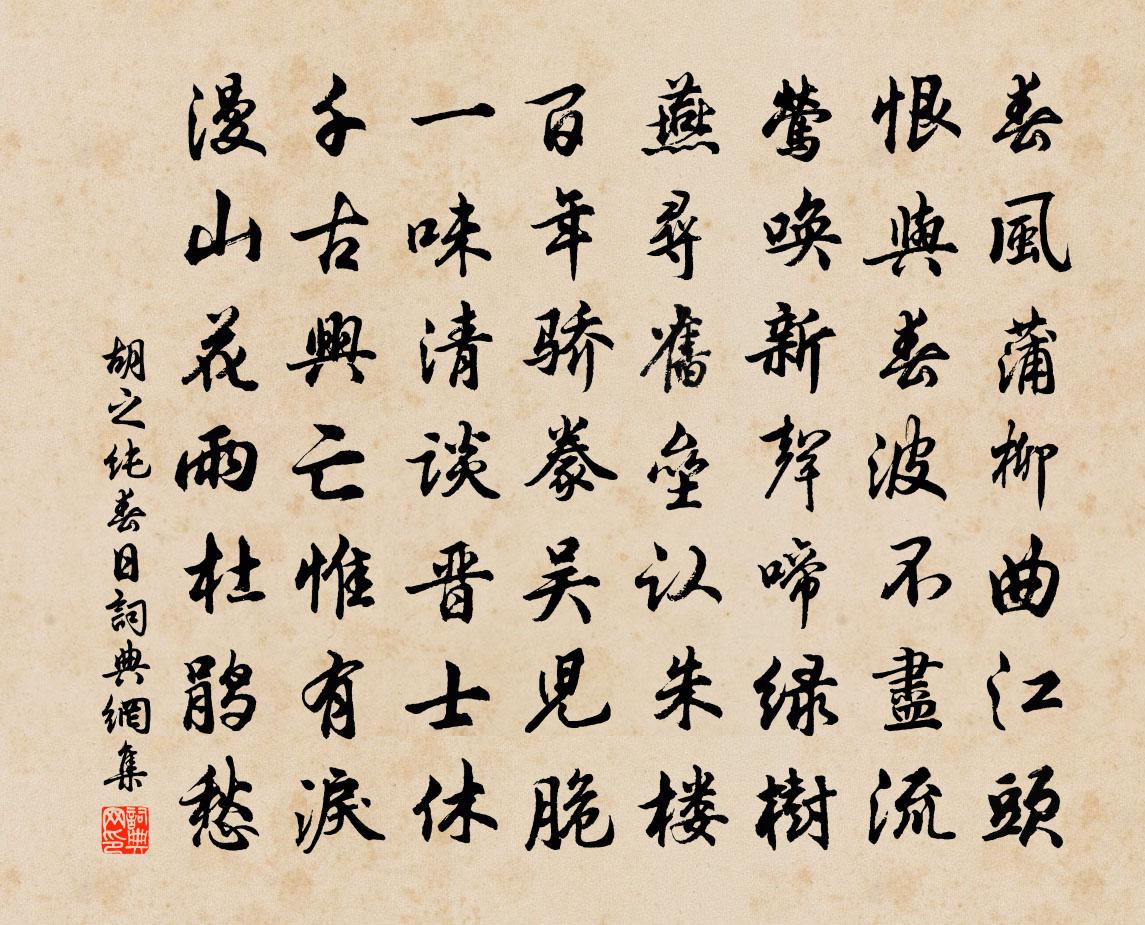 春風蒲柳曲江頭
恨與春波不盡流
鶯喚新聲啼緑樹
燕尋舊壘认朱楼
百年骄豢吴児脆
一味清谈晋士休
千古興亡惟有淚
漫山花雨杜鹃愁
胡之纯春日詞典網集
詞典网印